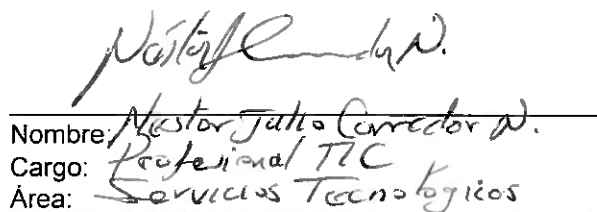 Néstor J Corredor N.
Nombre: Nestor Julio Corredor N.
Cargo: Profesional TIC
Área: Servicios Tecnologicos